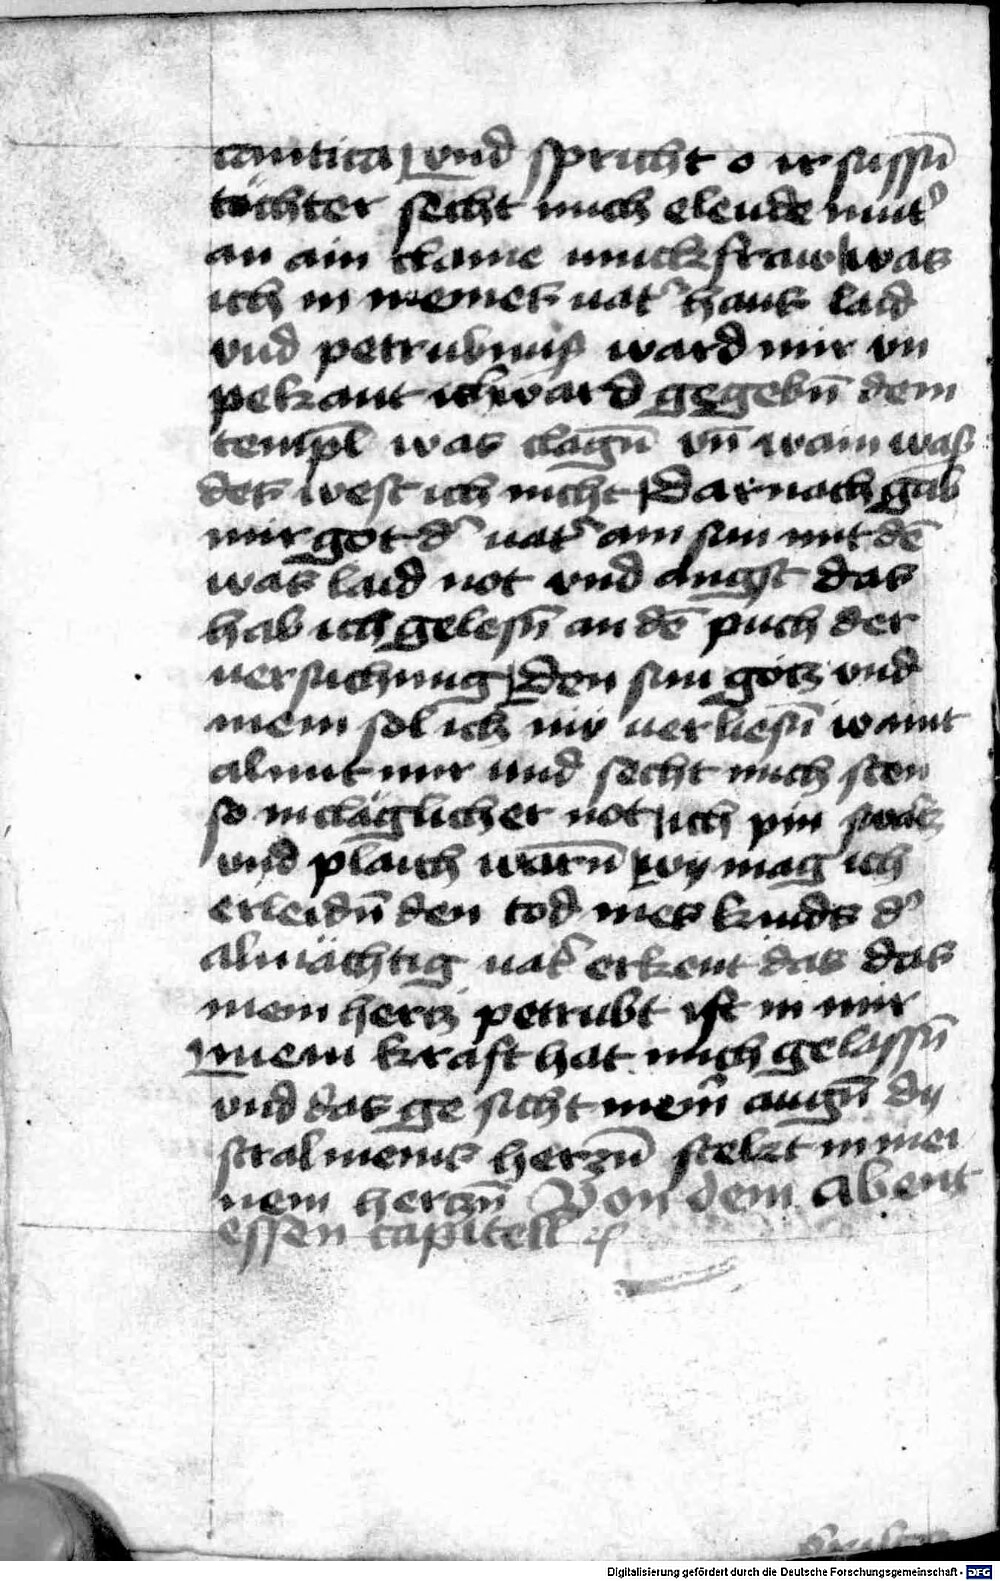 cantica vnd spricht o ir sussn̄
töchter secht mich elende mut᾽
an ain claine iunckfraw was
ich in meines uat᾽ haus laid
vnd petrubnuß ward mir vn
pekant ich ward gegebn̄ dem
templ̄ was clagn̄ vn̄ wain was
des west ich nicht Darnach gab
mir got d᾽ uat᾽ ain sun mit dē
was laid not vnd angst das
hab ich gelesn̄ an dē puch der
uersuchung Den sun gotz vnd
mein sol ich nu uerliesn̄ waint
al mit mir und secht mich sten
so in cläglicher not ich pin swatz
vnd plaich warn̄ wy mag ich
erleidn̄ den tod mes kinds d᾽
almächtig uat᾽ erkent das das
mein hertz petrubt ist in mir
mein kraft hat mich gelassn̄
vnd das ge sicht mein̄ augn̄ dy
stral meins herzn̄ stekt in mei
nem hertzn̄ Von dem abent
essen capitell
Digitalisierung gefördert durch die Deutsche Forschungsgemeinschaft - DFG